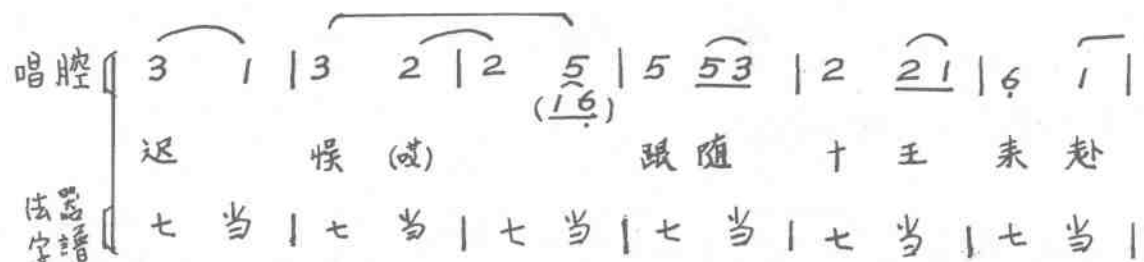 唱腔 3 1 | 3 2 | 2 5 | 5 53 | 2 21 | 6̣ 1 |
(1 6̣)
迟 悮 (哎) 跟 随 十 王 来 赴
法器字譜 七 当 | 七 当 | 七 当 | 七 当 | 七 当 | 七 当 |